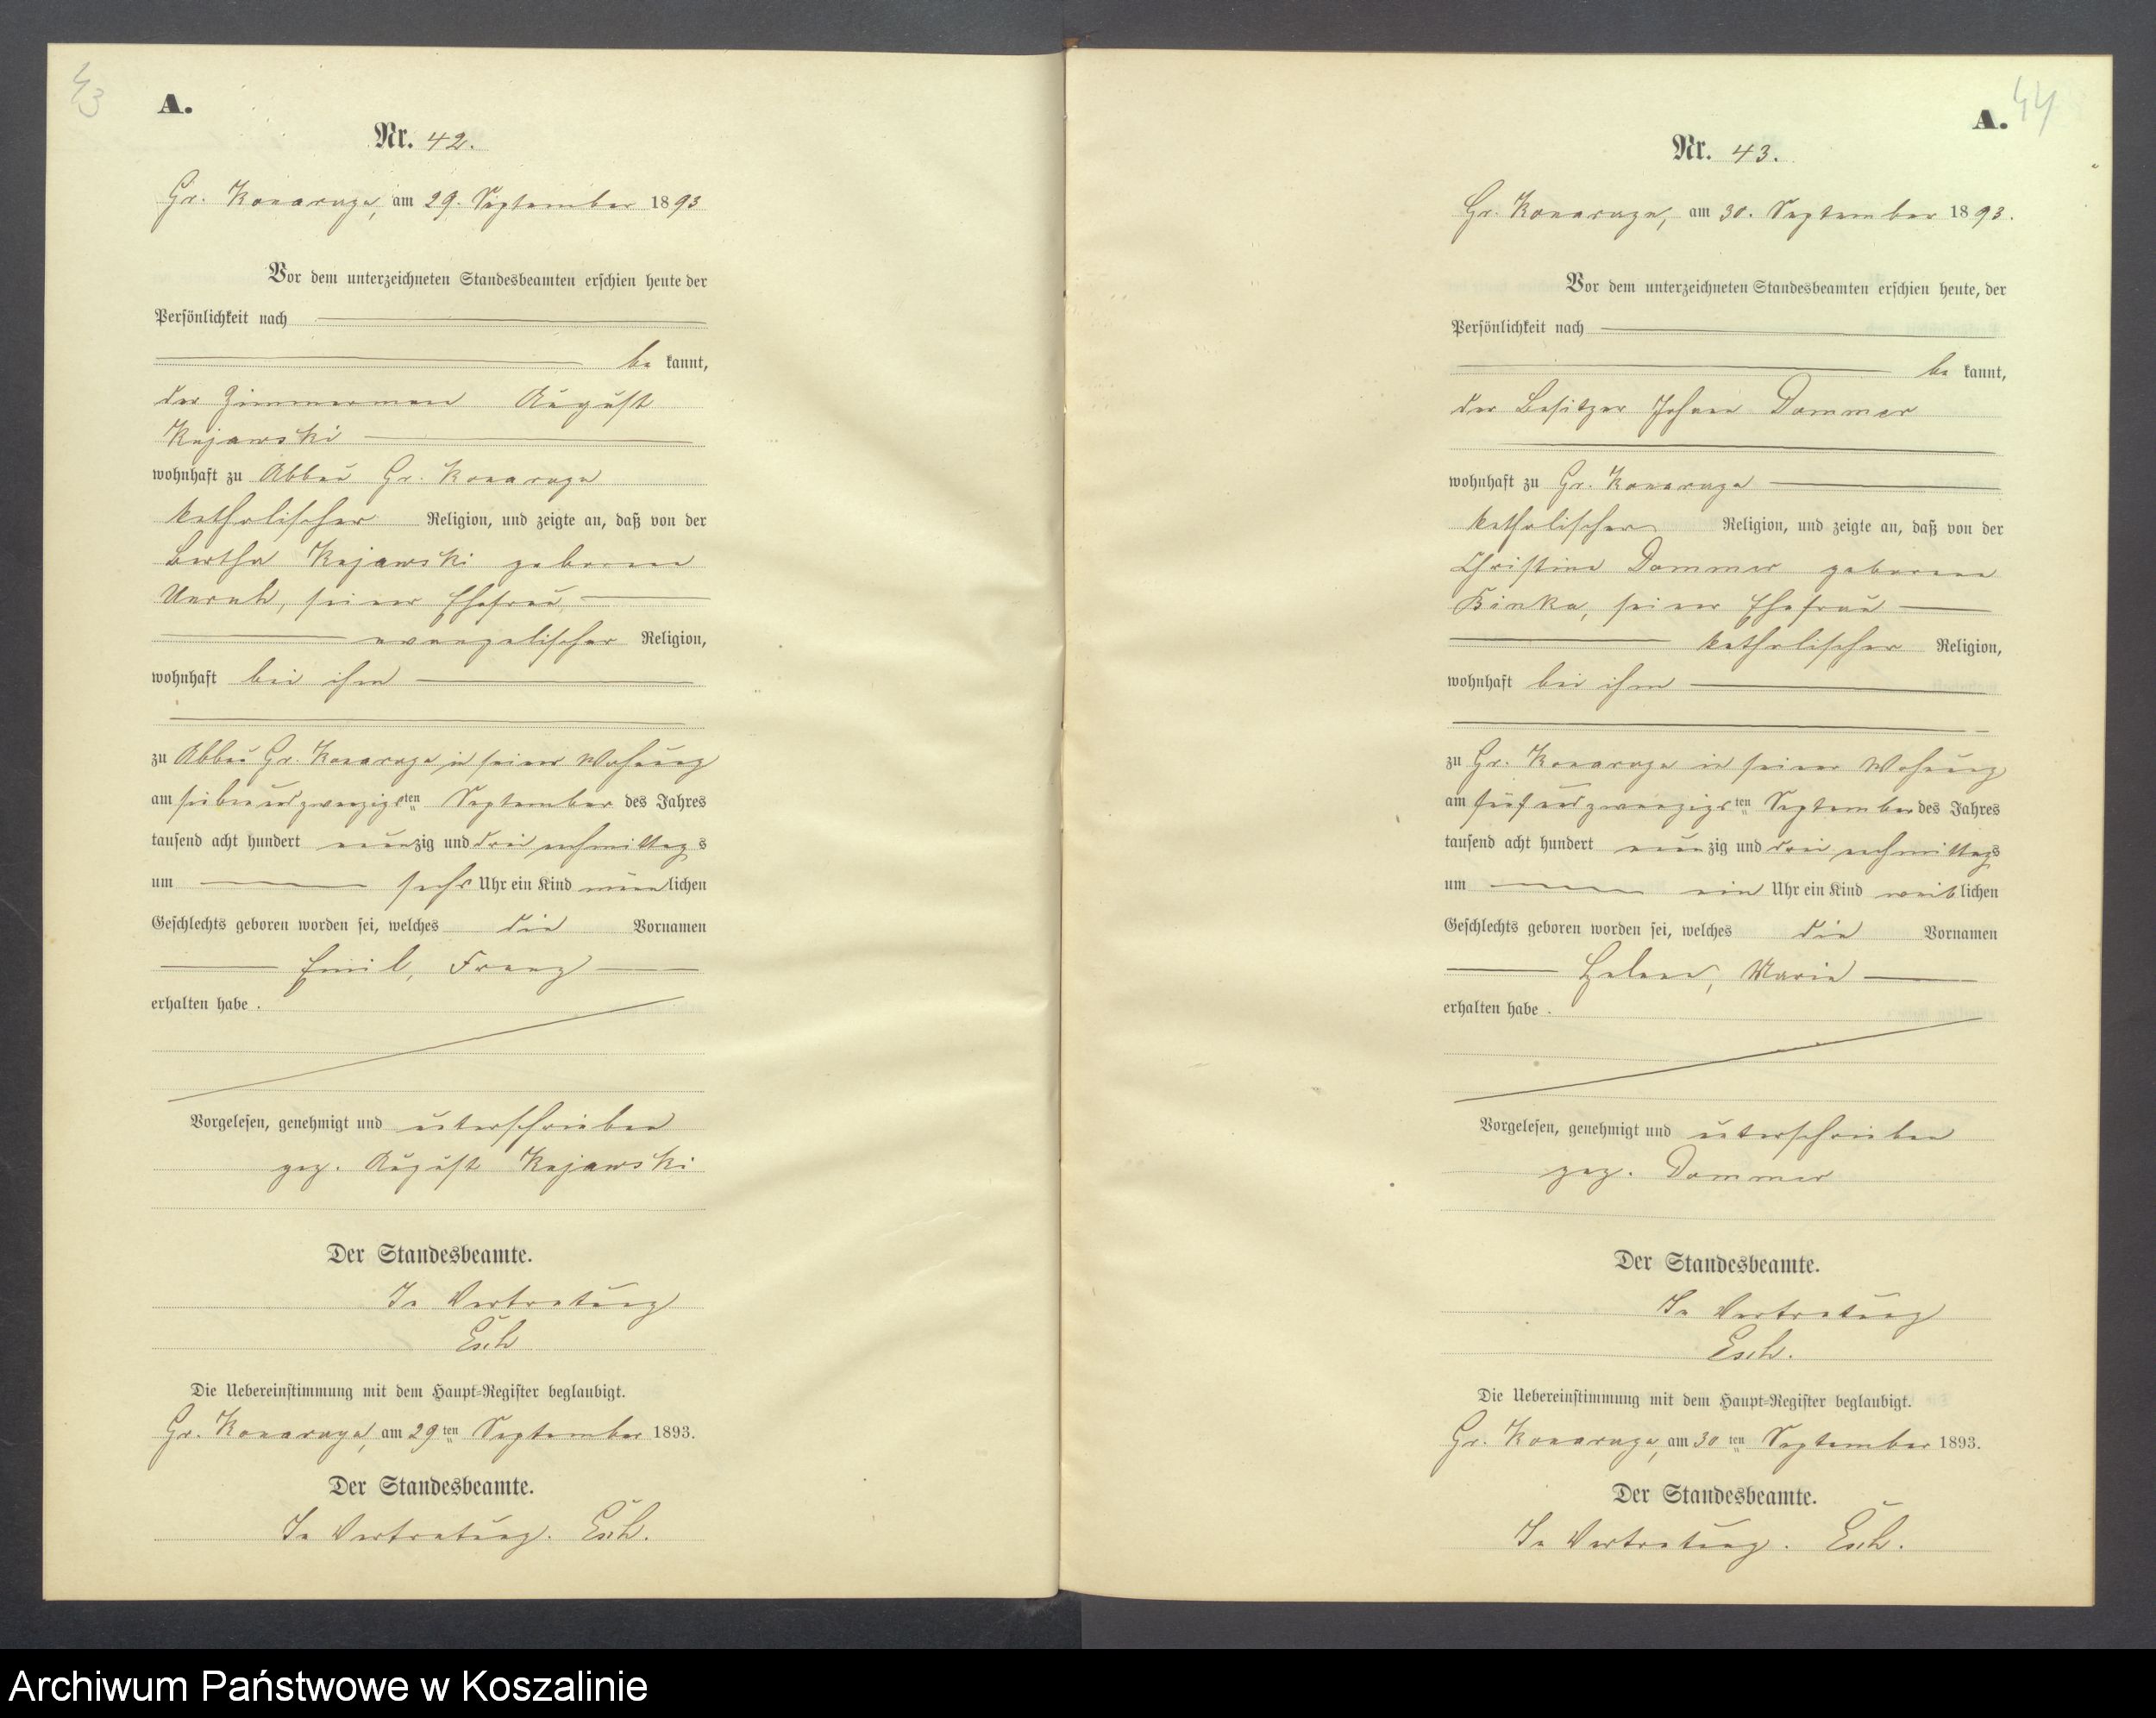 43
A.
Nr. 42.
Gr. Konarczyn, am 29. September 1893
Vor dem unterzeichneten Standesbeamten erschien heute der
Persönlichkeit nach
be kannt,
der Zimmermann August
Kujawski
wohnhaft zu Abbau Gr. Konarczyn
katholischer Religion, und zeigte an, daß von der
Bertha Kujawski geborene
Unruh, seiner Ehefrau
evangelischer Religion,
wohnhaft bei ihm
zu Abbau Gr. Konarczyn in seiner Wohnung
am siebenundzwanzigsten September des Jahres
tausend acht hundert neunzig und drei nachmittags
um sechs Uhr ein Kind männlichen
Geschlechts geboren worden sei, welches die Vornamen
Emil, Franz
erhalten habe.
Vorgelesen, genehmigt und unterschrieben
gez. August Kujawski
Der Standesbeamte.
In Vertretung
Esch
Die Uebereinstimmung mit dem Haupt-Register beglaubigt.
Gr. Konarczyn, am 29ten September 1893.
Der Standesbeamte.
In Vertretung. Esch.
44
A.
Nr. 43.
Gr. Konarczyn, am 30. September 1893.
Vor dem unterzeichneten Standesbeamten erschien heute, der
Persönlichkeit nach
be kannt,
der Besitzer Johann Dommer
wohnhaft zu Gr. Konarczyn
katholischer Religion, und zeigte an, daß von der
Christine Dommer geborene
Binka, seiner Ehefrau
katholischer Religion,
wohnhaft bei ihm
zu Gr. Konarczyn in seiner Wohnung
am fünfundzwanzigsten September des Jahres
tausend acht hundert neunzig und drei nachmittags
um ein Uhr ein Kind weiblichen
Geschlechts geboren worden sei, welches die Vornamen
Helene, Marie
erhalten habe.
Vorgelesen, genehmigt und unterschrieben
gez. Dommer
Der Standesbeamte.
In Vertretung
Esch.
Die Uebereinstimmung mit dem Haupt-Register beglaubigt.
Gr. Konarczyn, am 30ten September 1893.
Der Standesbeamte.
In Vertretung. Esch.
Archiwum Państwowe w Koszalinie